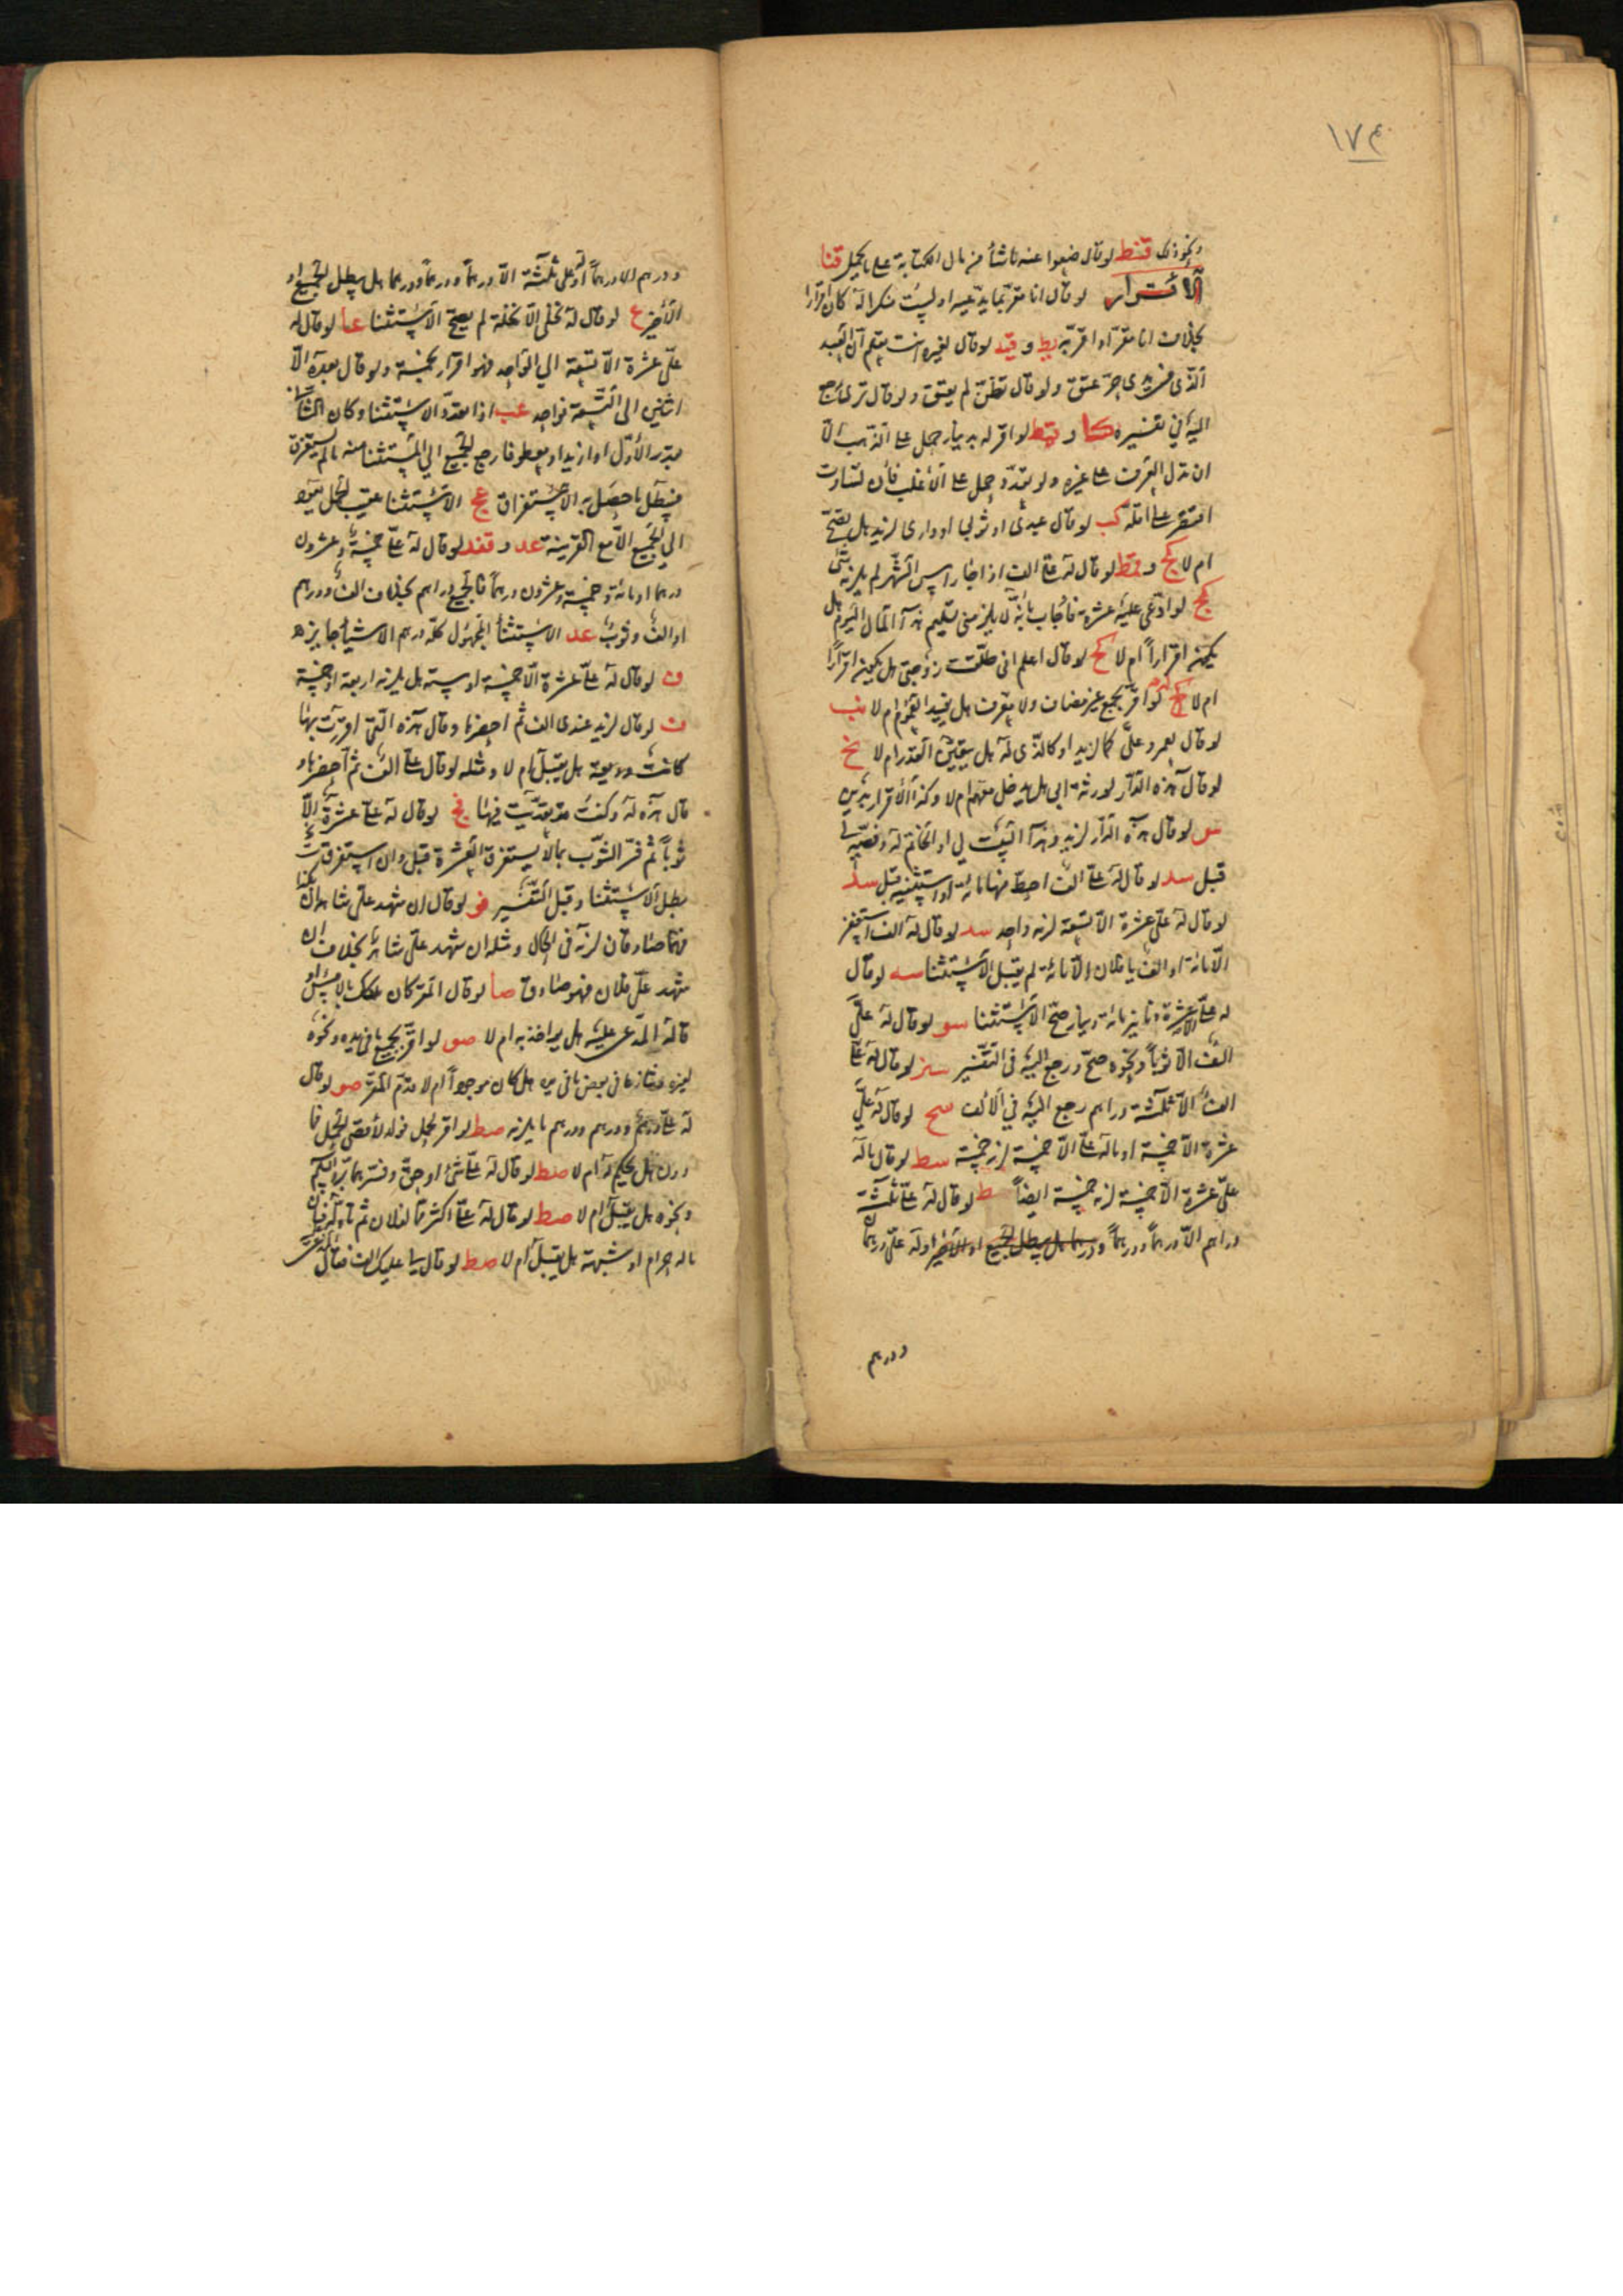 ١٧٤
ونحو ذلك قنط لو قال ضعوا عنه ما شأ من مال الكتابة على ما يحمل قنا
الاقرار لو قال انا مقر بما يدعيه او ليست منكرا له كان اقرارا
بخلاف انا مقر او اقر به يط و قيد لو قال لغيره انت تعلم ان العبد
الذى فى يدى حر عتق ولو قال تظن لم يعتق ولو قال ترى
اليه فى تفسيره كا و لو اقر له بدينار حمل على الذهب الا
ان يدل العرف على غيره ولو تعدد حمل على الاغلب فان تساوت
اقتصر على اقله كب لو قال عبدى او ثوبى او دارى لزيد هل يصح
ام لا كج و لو قال له على الف اذا جا راس الشهر لم يلزمه شئ
كج لو ادعى عليه عشرة فاجاب بانه لا يلزمنى تسليم هذا المال اليوم هل
يكون اقراراً ام لا كج لو قال اعلم انى طلقت زوجتى هل يكون اقرارا
ام لا كج لو اقر بجمع غير مضاف ولا معرف هل يفيد العموم ام لا نب
لو قال لعمرو على كما لزيد او كالذى له هل يتعين القدر ام لا نج
لو قال هذه الدار لورثة ابى هل يدخل معهم ام لا وكذا الاقرار بدين
سو لو قال هذه الدار لزيد وهذا البيت لى او الخاتم له وفصه لى
قبل سد لو قال له على الف احط منها مائة او استثنيه قبل سد
لو قال له على عشرة الا تسعة لزمه واحد سد لو قال له الف استغفر
الا مائة او الف يا فلان الا مائة لم يقبل الاستثنا سه لو قال
له على الا عشرة دنانير مائة دينار صح الاستثنا سو لو قال له على
الف الا ثوباً ونحوه صح ورجع اليه فى التفسير سز لو قال له على
الف الا ثلثة دراهم رجع اليه فى الالف سح لو قال له على
عشرة الا خمسة او ماله على الا خمسة لزم خمسة سط لو قال ماله
على عشرة الا خمسة لزمه خمسة ايضاً سط لو قال له على ثلثة
دراهم الا درهماً ودرهماً ودرهما هل يبطل الجميع او الاخير او له على درهم
ودرهم
ودرهم الا درهماً او على ثلثة الا درهماً ودرهماً ودرهما هل يبطل الجميع او
الاخير ع لو قال له نخلى الا نخلة لم يصح الاستثنا عا لو قال له
على عشرة الا تسعة الى الواحد فهو اقرار بخمسة ولو قال بعده الا
اثنين الى التسعة فواحد عب اذا تعدد الاستثنا وكان الثانى
بقدر الأول او ازيد او بعطو فا رجع الجميع الى المستثنا منه ما لم يستغرق
فيبطل ما حصل به الاستغراق عج الاستثنا عقيب الجمل يعود
الى الجميع الا مع القرينة عد و قند لو قال له على خمسة وعشرون
درهما او مائة وخمسة وعشرون درهماً فالجميع دراهم بخلاف الف ودرهم
او الف وثوب عد الاستثنأ المجهول كله درهم الا شيأ جايزه
ف لو قال له على عشرة الا خمسة او ستة هل يلزمه اربعة او خمسة
ف لو قال لزيد عندى الف ثم احضرها وقال هذه التى اقررت بها
كانت وديعة هل يقبل ام لا ومثله لو قال على الف ثم احضرها و
قال هذه له وكنت قد تعديت فيها فج لو قال له على عشرة الا
ثوباً ثم فسر الثوب بما لا يستغرق العشرة قبل وان استغرقت
بطل الاستثنا وقبل التفسير فو لو قال ان شهد على شاهدان
فهما صادقان لزمه فى الحال ومثله ان شهد على شاهد بخلاف ان
شهد على فلان فهو صادق صا لو قال المقر كان
قاله المدعى عليه هل يواخذ به ام لا صو لو اقر بجميع ما فى يده ونحوه
لغيره وتنازعا فى بعض ما فى يده هل كان موجوداً ام لا قدم المقر صو لو قال
له على درهم ودرهم ودرهم ما يلزمه صط لو اقر لحمل فولد لأقصى الحمل فما
دون هل يحكم له ام لا صط لو قال له على شئ او حق وفسر بما
ونحوه هل يقبل ام لا صط لو قال له على اكثر مما لفلان ثم
ماله حرام او شبهة هل يقبل ام لا صط لو قال لى عليك الف فقال